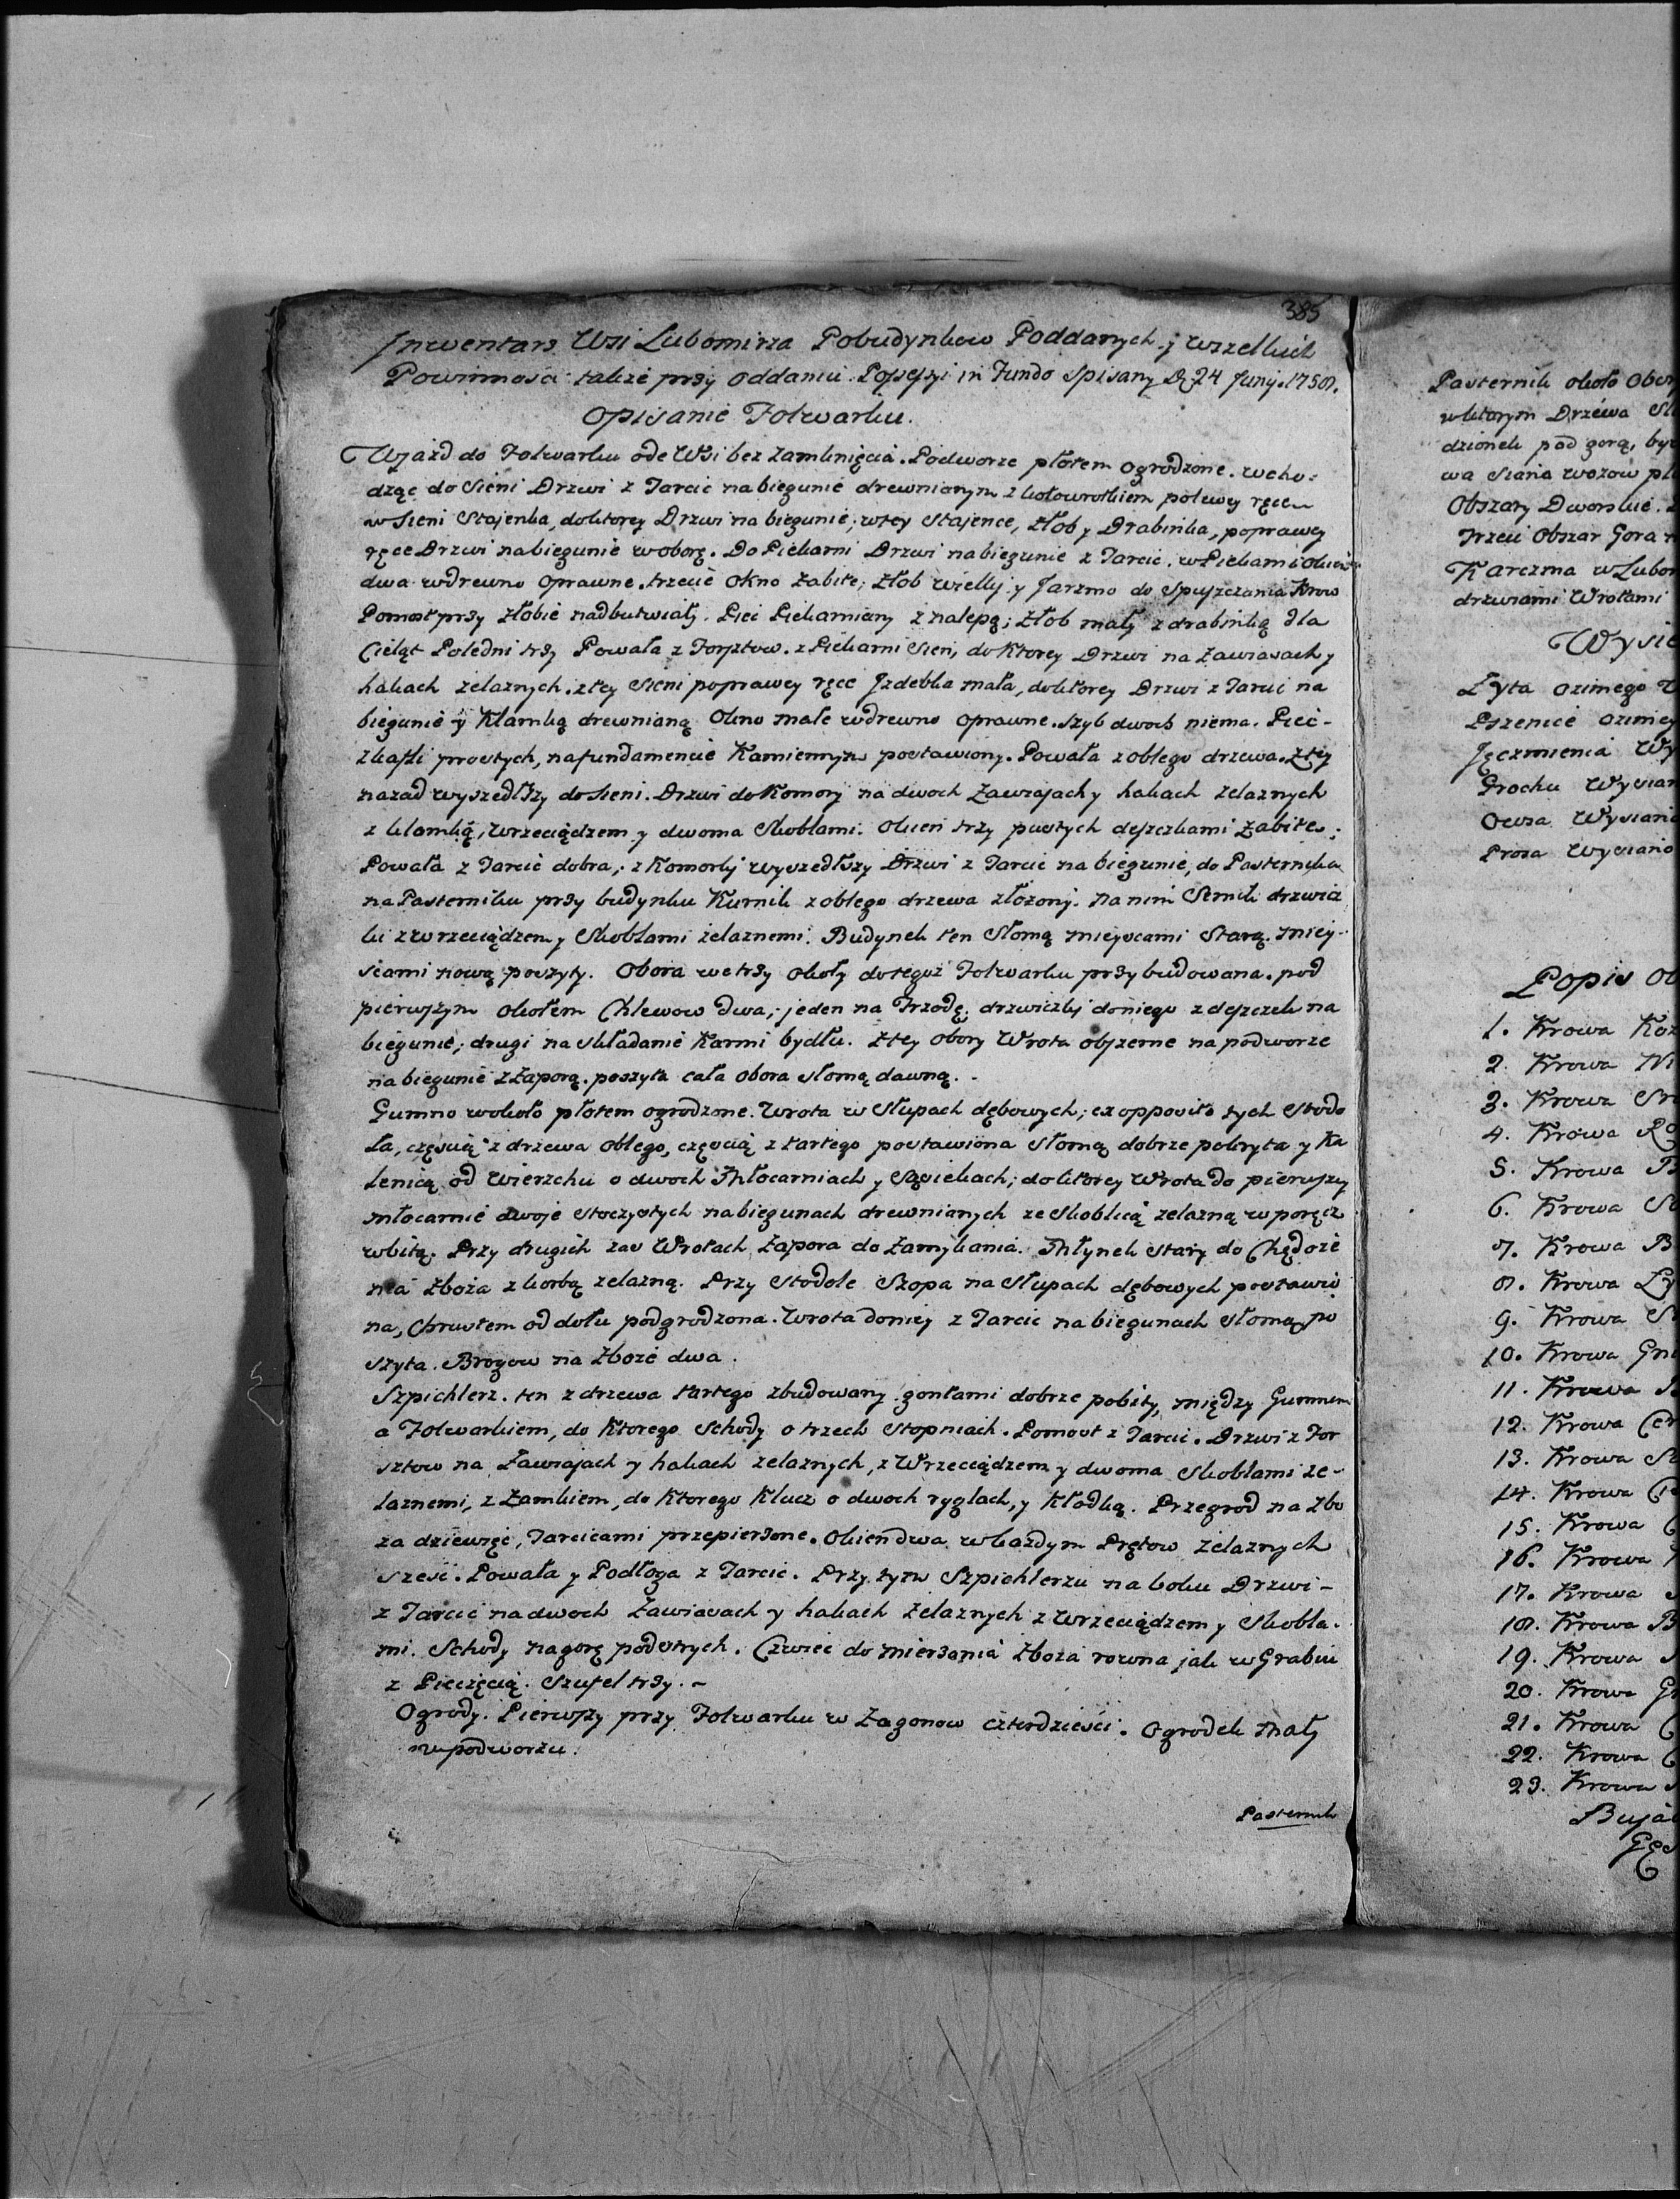 385
Inwentarz Wsi Lubomirza Pobudynkow Poddanych y wszelkich
Powinnosci także przy oddaniu Possessyi in Fundo Spisany D. 24 Junij 1758.
Opisanie Folwarku.
Wjazd do Folwarku ode Wsi bez zamknięcia. Podworze płotem ogrodzone. wcho=
dząc do Sieni Drzwi z Tarcic na biegunie drewnianym z kołowrotkiem polewey ręce
w Sieni Stajenka, doktorey Drzwi na biegunie; wtey Stajence, Złob y Drabinka, poprawey
ręce Drzwi nabiegunie woborę. Do Piekarni Drzwi nabiegunie z Tarcic. w Piekarni okien
dwa wdrewno oprawne. trzecie okno zabite; złob wielki y Jarzmo do spuszczania Krow
Pomost przy złobie nadbutwiały. Piec Piekarniany z nalepą; złob mały z drabinką dla
Cieląt Poledni trzy Powała z Forsztow. z Piekarni Sień, do Ktorey Drzwi na zawiasach y
hakach zelaznych. ztey Sieni poprawey ręce Izdebka mała, doktorey Drzwi z Tarcic na
biegunie y Klamką drewnianą Okno małe wdrewno oprawne. szyb dwoch niema. Piec-
zkafli prostych, nafundamencie Kamiennym postawiony. Powała zobłego drzewa. Ztey
nazad wyszedłszy do sieni. Drzwi do Komory na dwoch zawiasach y hakach zelaznych
z klamką, wrzeciądzem y dwoma Skoblami. okien trzy pustych deszczkami zabite.
Powała z Tarcic dobra; z Komorki wyszedłszy Drzwi z Tarcic na biegunie, do Pasternika
na Pasterniku przy budynku Kurnik zobłego drzewa złożony. na nim Sernik drzwicz
ki zwrzeciądzem y Skoblami żelaznemi. Budynek ten Słomą mieyscami Starą. miey-
scami nową poszyty. Obora wetrzy okoły dotegoż Folwarku przybudowana. pod
pierwszym okołem Chlewow dwa; jeden na Trzodę. drzwiczki doniego z deszczek na
biegunie; drugi na składanie Karmi bydłu. ztey obory Wrota obszerne na podworze
na biegunie z Zaporą. poszyta cała obora słomą dawną.
Gumno wokoło płotem ogrodzone. Wrota w Słupach dębowych; ex opposito tych Stodo
ła, częscią z drzewa obłego, częscią z tartego postawiona Słomą dobrze pokryta y Ka
lenicą od wierzchu o dwoch Młocarniach y Sąsiekach; doktorey Wrota do pierwszy
młocarnie dwoje stoczystych nabiegunach drewnianych ze Skoblicą zelazną wporęcz
wbitą. Przy drugich zas Wrotach Zapora do zamykania. Młynek stary do Chędoże
nia zboza z korbą zelazną. Przy Stodole Szopa na Słupach dębowych postawio
na, Chrustem od dołu podgrodzona. Wrota doniey z Tarcic na biegunach słomą po
szyta. Brogow na zboże dwa.
Szpichlerz. ten z drzewa tartego zbudowany gontami dobrze pobity, między Gumnem
a Folwarkiem, do Ktorego Schody o trzech stopniach. Pomost z Tarcic. Drzwi z For
sztow na Zawiasach y hakach zelaznych, z Wrzeciądzem y dwoma Skoblami ze-
laznemi, z Zamkiem, do Ktorego Klucz o dwoch ryglach, y Kłodką. Przegrod na zbo
za dziewięć, Tarcicami przepierzone. Okien dwa wkażdym Prętow zelaznych
szesć. Powała y Podłoga z Tarcic. Przy tym Szpichlerzu na boku Drzwi-
z Tarcic na dwoch Zawiasach y hakach żelaznych z Wrzeciądzem y Skobla.
mi. Schody nagorę podstrych. Czwierć do mierzania zboża rowna jak w Grabiu
z Pieczęcią. Szufel trzy.
Ogrody. Pierwszy przy Folwarku w Zagonow czterdzieści. Ogrodek mały
wpodworzu.
Pasternik
Pasternik około
wktorym Drzewa
dzionek pod gorą,
wa Siana wozow
Obszary Dworskie.
Trzeci Obszar Gora
Karczma w
drzwiami Wrotami
Zyta ozimego
Pszenice ozimey
Jęczmienia
Grochu
Owsa
Prosa Wysiano
Popis
1. Krowa
2. Krowa
3. Krowa
4. Krowa
5. Krowa
6. Krowa
7. Krowa
8. Krowa
9. Krowa
10. Krowa
11. Krowa
12. Krowa
13. Krowa
14. Krowa
15. Krowa
16. Krowa
17. Krowa
18. Krowa
19. Krowa
20. Krowa
21. Krowa
22. Krowa
23. Krowa